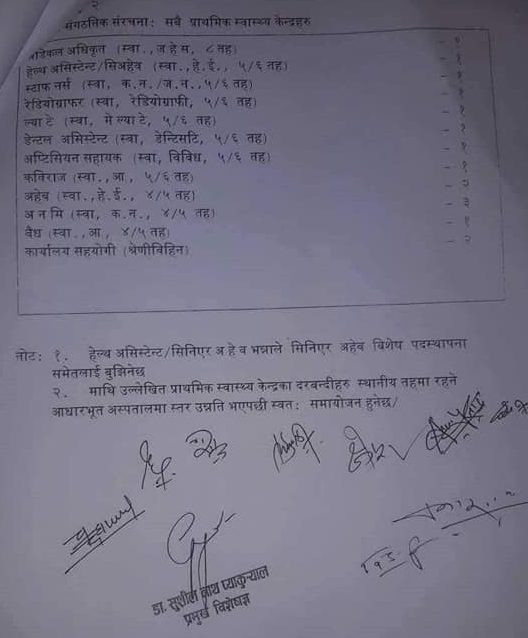 संगठनिक संरचना: सबै प्राथमिक स्वास्थ्य केन्द्रहरु
मेडिकल अधिकृत (स्वा., ज हे स, ८ तह)
हेल्थ असिस्टेन्ट/सिअहेव (स्वा., हे.ई., ५/६ तह) - १
स्टाफ नर्स (स्वा, क.न./ज.न., ५/६ तह) - १
रेडियोग्राफर (स्वा, रेडियोग्राफी, ५/६ तह) - १
ल्या टे (स्वा, मे ल्या टे, ५/६ तह) - १
डेन्टल असिस्टेन्ट (स्वा, डेन्टिसटि, ५/६ तह) - १
अप्टिसियन सहायक (स्वा, विविध, ५/६ तह) - १
कविराज (स्वा., आ., ५/६ तह) - १
अहेव (स्वा., हे.ई., ४/५ तह) - २
अ न मि (स्वा, क.न., ४/५ तह) - ३
वैध (स्वा., आ., ४/५ तह) - १
कार्यालय सहयोगी (श्रेणीविहिन) - २
नोट: १. हेल्थ असिस्टेन्ट/सिनिएर अ हे व भन्नाले सिनिएर अहेव विशेष पदस्थापना
समेतलाई बुझिनेछ
२. माथि उल्लेखित प्राथमिक स्वास्थ्य केन्द्रका दरबन्दीहरु स्थानीय तहमा रहने
आधारभूत अस्पतालमा स्तर उन्नति भएपछी स्वत: समायोजन हुनेछ/
डा. सुशील नाथ प्याकुर्‍याल
प्रमुख विशेषज्ञ